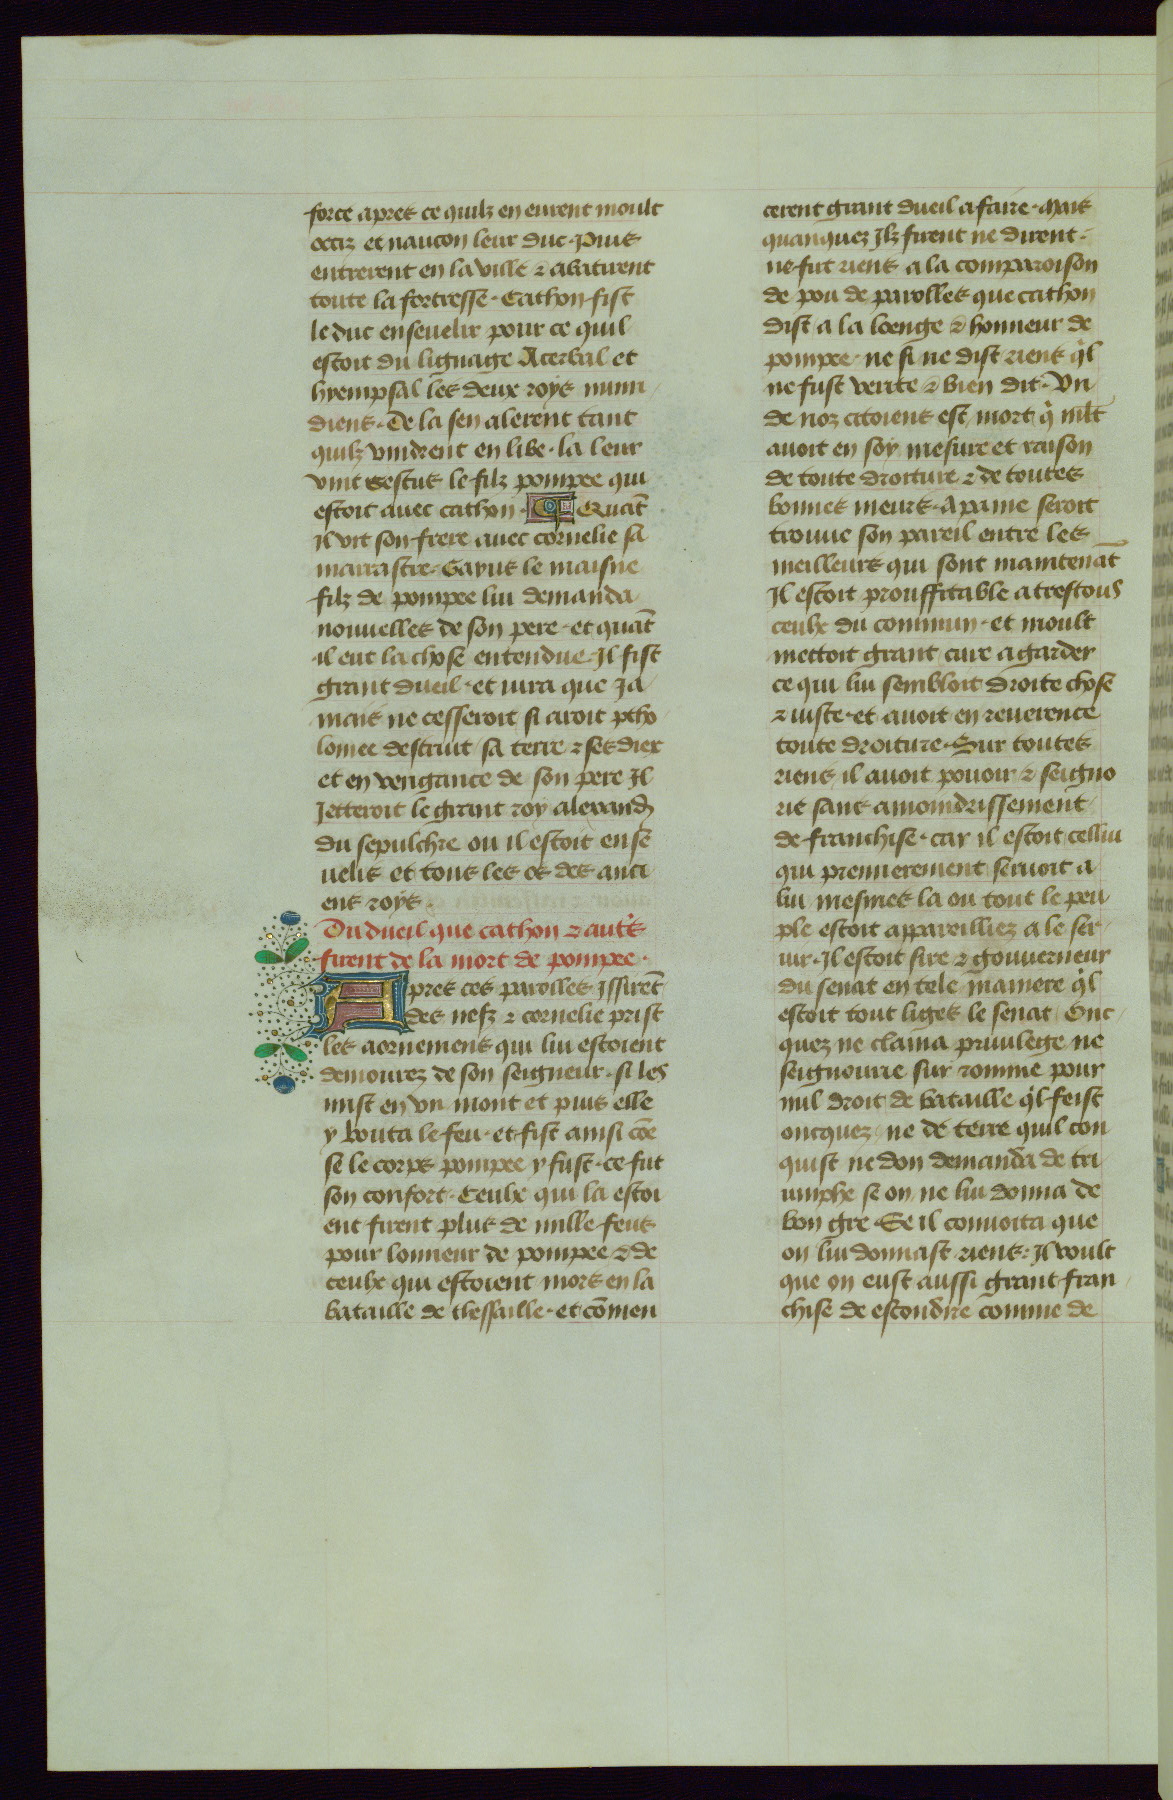 force apres ce quilz en eurent moult
occiz et naucon leur duc. Puis
entrerent en la ville & abatirent
toute la forteresse. Cathon fist
le duc ensevelir pour ce quil
estoit du lignage Acerbal et
hyempsal les deux roys numi
diens. De la sen alerent tant
quilz vindrent en libe. la leur
vint sestus le filz pompee qui
estoit avec cathon. Quāt
il vit son frere avec cornelie sa
marrastre. Gayus le maisne
filz de pompee lui demanda
nouvelles de son pere. et quāt
il eut la chose entendue Il fist
grant dueil. et iura que Ja
mais ne cesseroit si aroit ptho
lomee destruit sa terre & ses diex
et en vengance de son pere Il
Jetteroit le grant roy alexand̄
du sepulchre ou il estoit ense
uelis et tous les os des anci
ens roys.
Du dueil que cathon & aut̓s
firent de la mort de pompee.
Apres ces parolles Issirēt
des nefz & cornelie prist
les aornemens qui lui estoient
demourez de son seigneur. si les
mist en vn mont et puis elle
y bouta le feu. et fist ainsi cōe
se le corps pompee y fust. ce fut
son confort. Ceulx qui la estoi
ent firent plus de mille feus
pour lonneur de pompee & de
ceulx qui estoient mors en la
bataille de thessaille. et cōmen
cerent grant dueil a faire. Mais
quanquez Ilz firent ne dirent.
ne fut riens a la comparoison
de pou de parolles que cathon
dist a la loenge & honneur de
pompee. ne si ne dist riens q̓l
ne fust verite & bien dit. Vn
de noz citoiens est mort q̓ mlt
avoit en soy mesure et raison
de toute droiture & de toutes
bonnes meurs. A paine seroit
trouue son pareil entre les
meilleurs qui sont maintenāt
Il estoit prouffitable a trestous
ceulx du commun. et moult
mettoit grant cure a garder
ce qui lui sembloit droite chose
& iuste. et avoit en reuerence
toute droiture. Sur toutes
riens il avoit pouoir & seigno
rie sans amoindrissement
de franchise. car il estoit cellui
qui premierement seruoit a
lui mesmes la ou tout le peu
ple estoit appareilliez a le ser
uir. Il estoit sire & gouuerneur
du senat en tele maniere q̓l
estoit tout liges le senat Onc
quez ne clama priuilege ne
seignourie sur romme pour
nul droit de bataille q̓l feist
oncquez. ne de terre quil con
quist ne don demanda de tri
umphe se on ne lui donna de
bon gre. Se il conuoita que
on lui donnast riens. Il voult
que on eust aussi grant fran
chise de escondire comme de